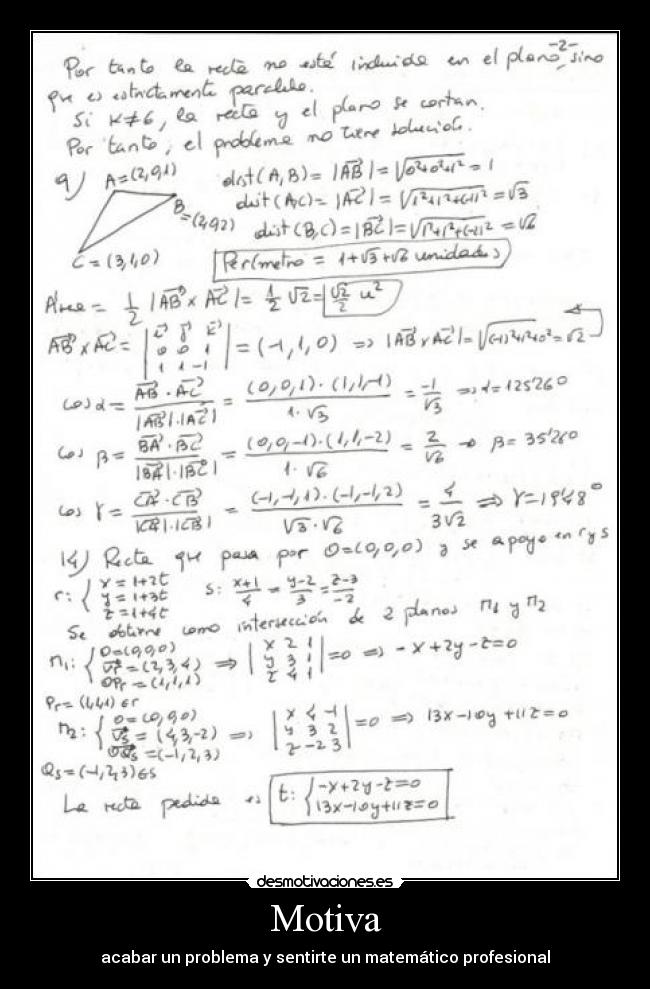 -2-
Por tanto la recta no está incluida en el plano, sino
que es estrictamente paralela.
Si K≠6, la recta y el plano se cortan.
Por tanto, el problema no tiene solución.
9) A=(2,0,1) dist(A,B)= |AB⃗| = √0²+0²+1² = 1
B=(2,0,2) dist(A,C)= |AC⃗| = √1²+1²+(-1)² = √3
C=(3,1,0) dist(B,C)= |BC⃗| = √1²+1²+(-2)² = √6
Perímetro = 1+√3+√6 unidades
Área = 1/2 |AB⃗ × AC⃗| = 1/2 √2 = √2/2 u²
AB⃗ × AC⃗ = | i⃗ j⃗ k⃗ |
| 0 0 1 | = (-1,1,0) ⇒ |AB⃗ × AC⃗| = √(-1)²+1²+0² = √2
| 1 1 -1 |
cos α = AB⃗ · AC⃗ / |AB⃗|·|AC⃗| = (0,0,1)·(1,1,-1) / 1·√3 = -1/√3 ⇒ α=125'26º
cos β = BA⃗ · BC⃗ / |BA⃗|·|BC⃗| = (0,0,-1)·(1,1,-2) / 1·√6 = 2/√6 ⇒ β=35'26º
cos γ = CA⃗ · CB⃗ / |CA⃗|·|CB⃗| = (-1,-1,1)·(-1,-1,2) / √3·√6 = 4/3√2 ⇒ γ=19'48º
14) Recta que pasa por O=(0,0,0) y se apoya en r y s
r: { x=1+2t
y=1+3t s: x+1/4 = y-2/3 = z-3/-2
z=1+4t
Se obtiene como intersección de 2 planos π1 y π2
π1: { O=(0,0,0) | x 2 1 |
vr⃗=(2,3,4) ⇒ | y 3 1 | =0 ⇒ -x+2y-z=0
OPr⃗=(1,1,1) | z 4 1 |
Pr=(1,1,1)∈r
π2: { O=(0,0,0) | x 4 -1 |
vs⃗=(4,3,-2) ⇒ | y 3 2 | =0 ⇒ 13x-10y+11z=0
OQs⃗=(-1,2,3) | z -2 3 |
Qs=(-1,2,3)∈s
La recta pedida es t: { -x+2y-z=0
13x-10y+11z=0
desmotivaciones.es
Motiva
acabar un problema y sentirte un matemático profesional